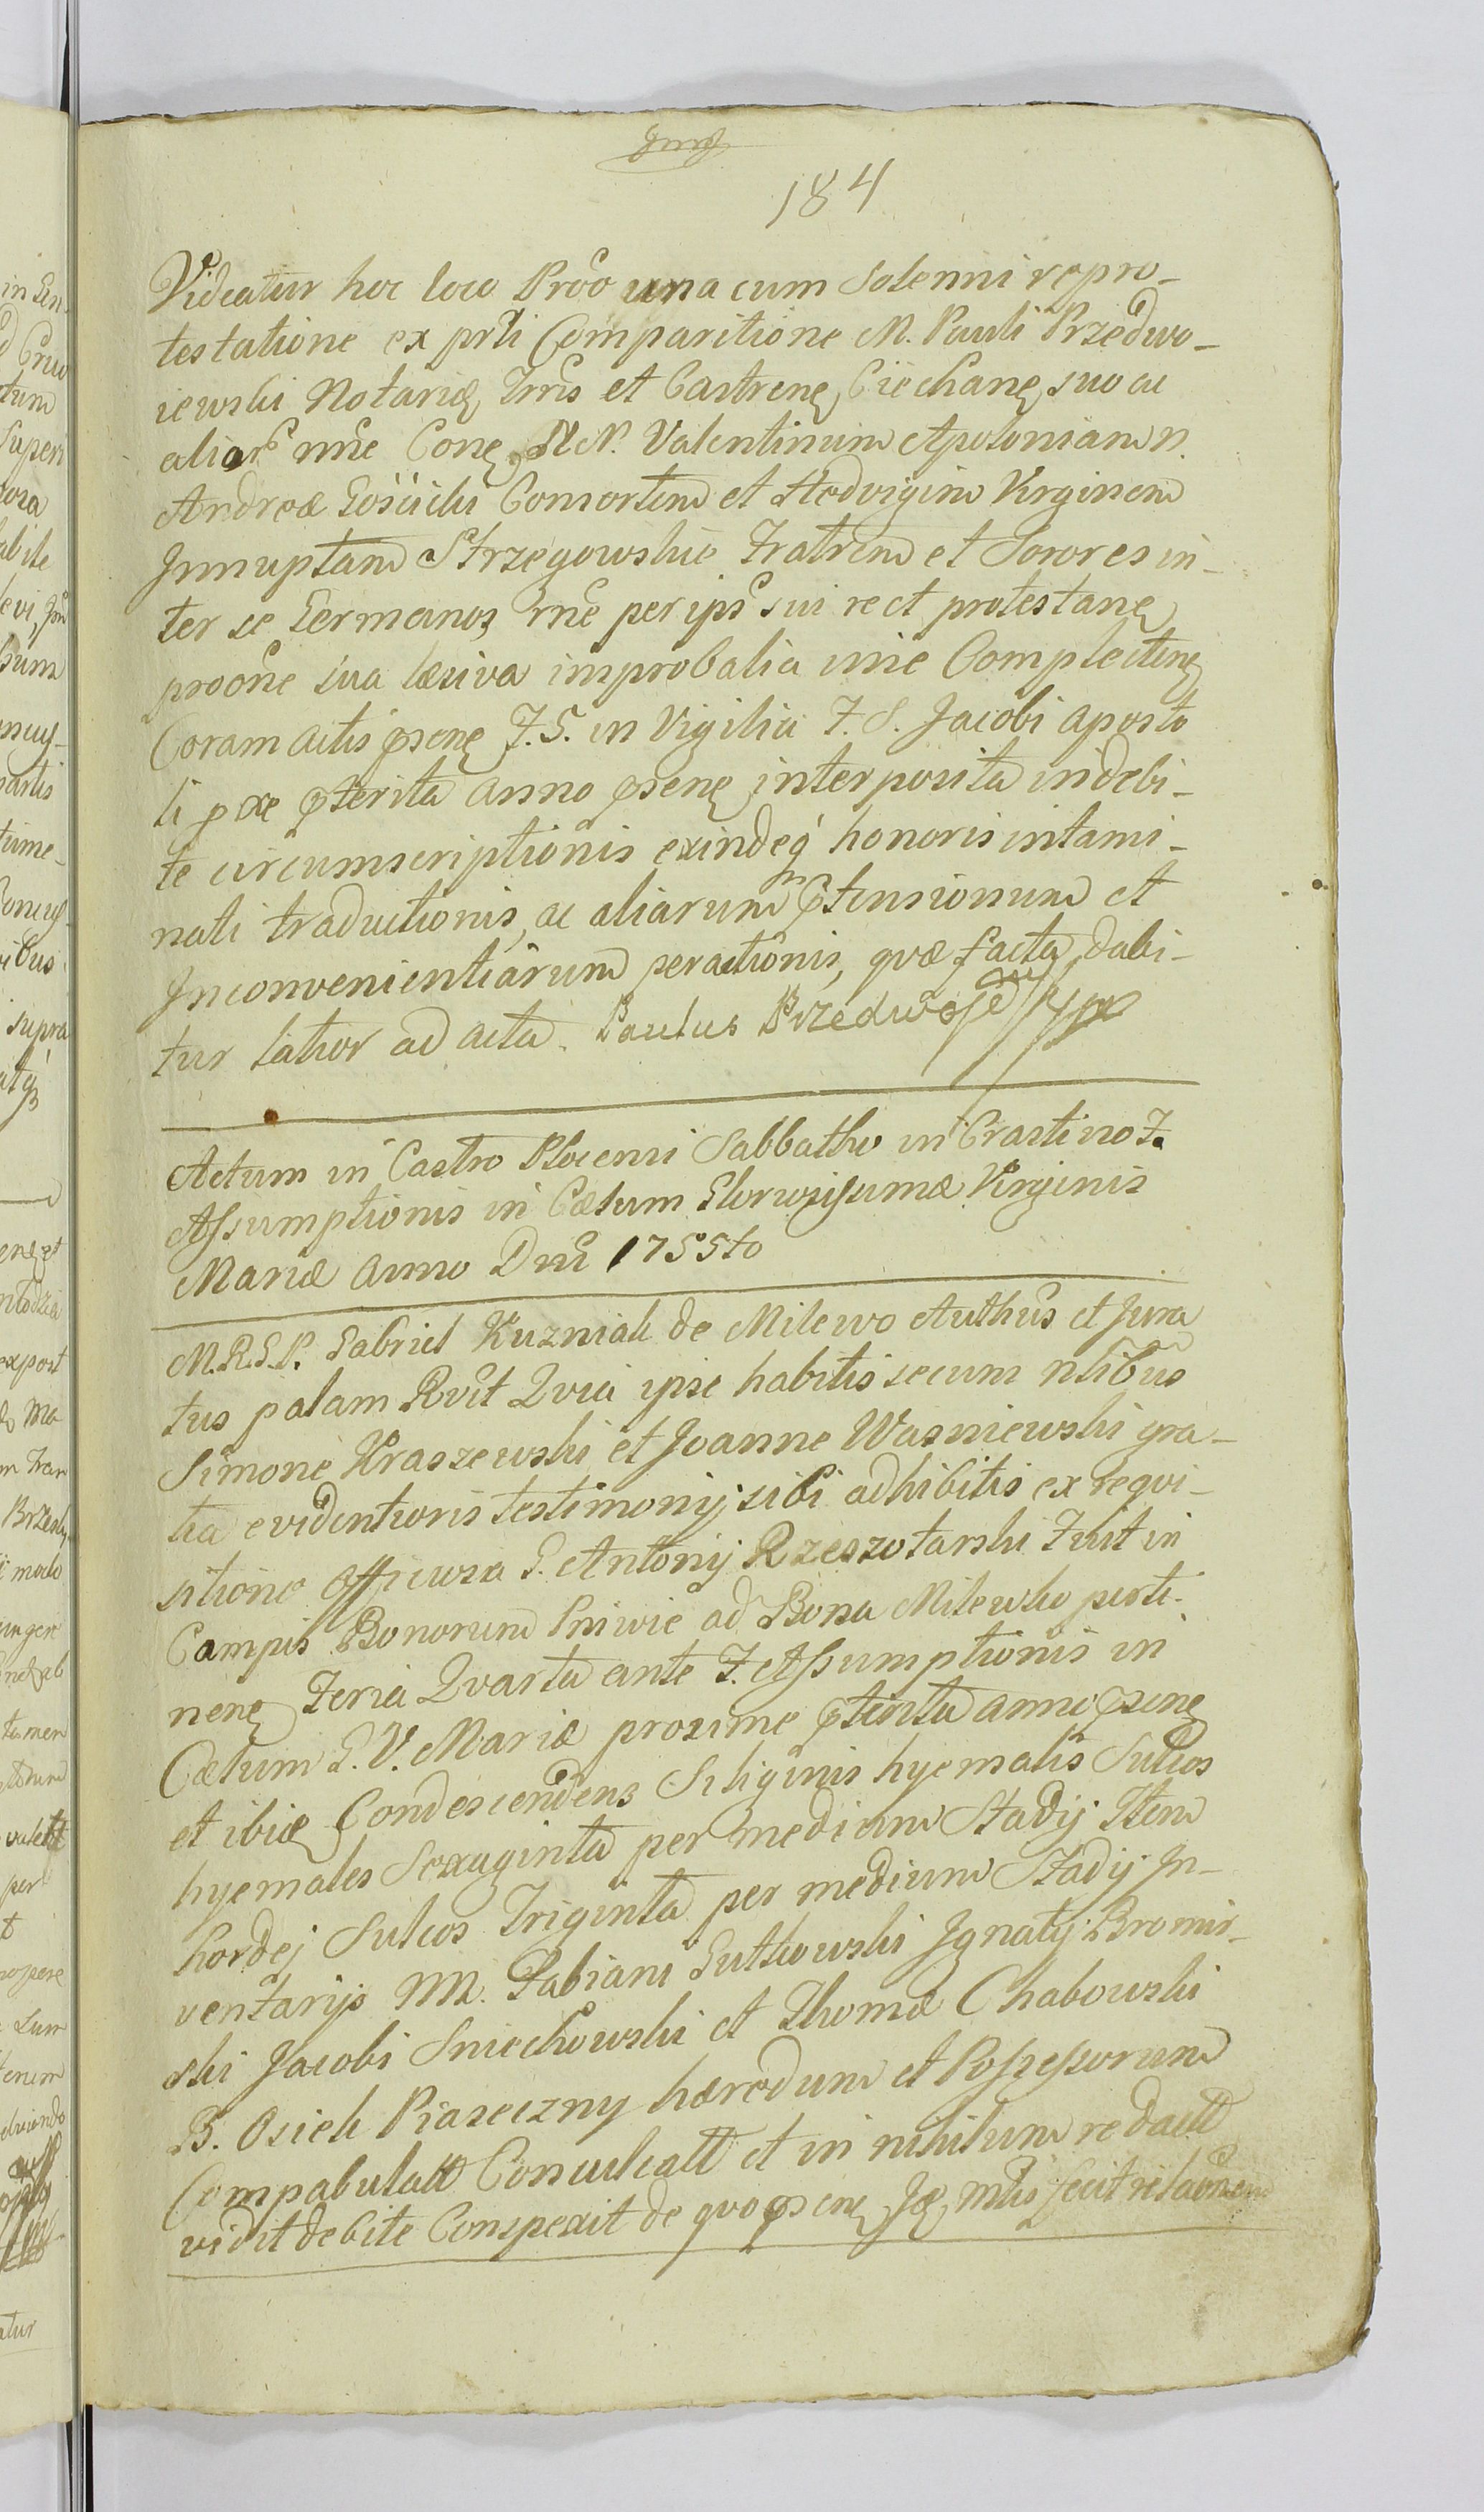 184
Videatur hoc loco Prõo una cum Solenni repro-
testatione ex prti Comparitione M. Pauli Przedwo-
iewski Notarię Trris et Castrenę Ciechanę suo ac
aliar nne Conę N.N. Valentinum Apoloniam N.
Andreæ Gościcki Consortem et Hedvigim Virginem
Innuptam Strzegowskie Fratrem et Sorores in-
ter se Germanos rne per ips sui rect protestanę
proõne sua læsiva improbalia inie Complectenę
Coram actis psenę F. S. in Vigilia F. S. Jacobi aposto
li pxe pterita anno psenę interposita indebi-
te circumscriptionis exindeq honoris intami-
nati traductionis, ac aliarum ptensionum et
Inconvenientiarum peractionis, quæ facta dabi-
tur latior ad acta. Paulus Przedwoje
Actum in Castro Plocensi Sabbatho in Crastino F.
Assumptionis in Cælum Gloriosissimæ Virginis
Mariæ Anno Dni 1755to
M.R.G.P. Gabriel Kuzniak de Milewo Authus et Jura
tus palam Rvit Quia ipse habitis secum nlibus
Simone Kraszewski et Joanne Wasniewski gra-
tia evidentioris testimonij sibi adhibitis ex requi-
sitione Officiosa G. Antonij Rzeszotarski Fuit in
Campis Bonorum Pniwie ad Bona Milewko perti-
nenę Feria Quarta ante F. Assumptionis in
Cælum B. V. Mariæ proxime pterita anni psenę
et ibię Condescendens Siliginis hyemalis Sulcos
hyemales Sexaginta per medium Stadij Item
hordej Sulcos Triginta per medium Stadij In-
ventarijs MM. Fabiani Gutkowski Ignatij Bromir-
ski Jacobi Sniechowski et Thomæ Chabowski
B. Osiek Piaseczny hæredum et Possessorum
Compabulatt Conculcatt et in nihilum redactt
vidit debite Conspexit de quo psenę Ję mlis fecit relaõnem